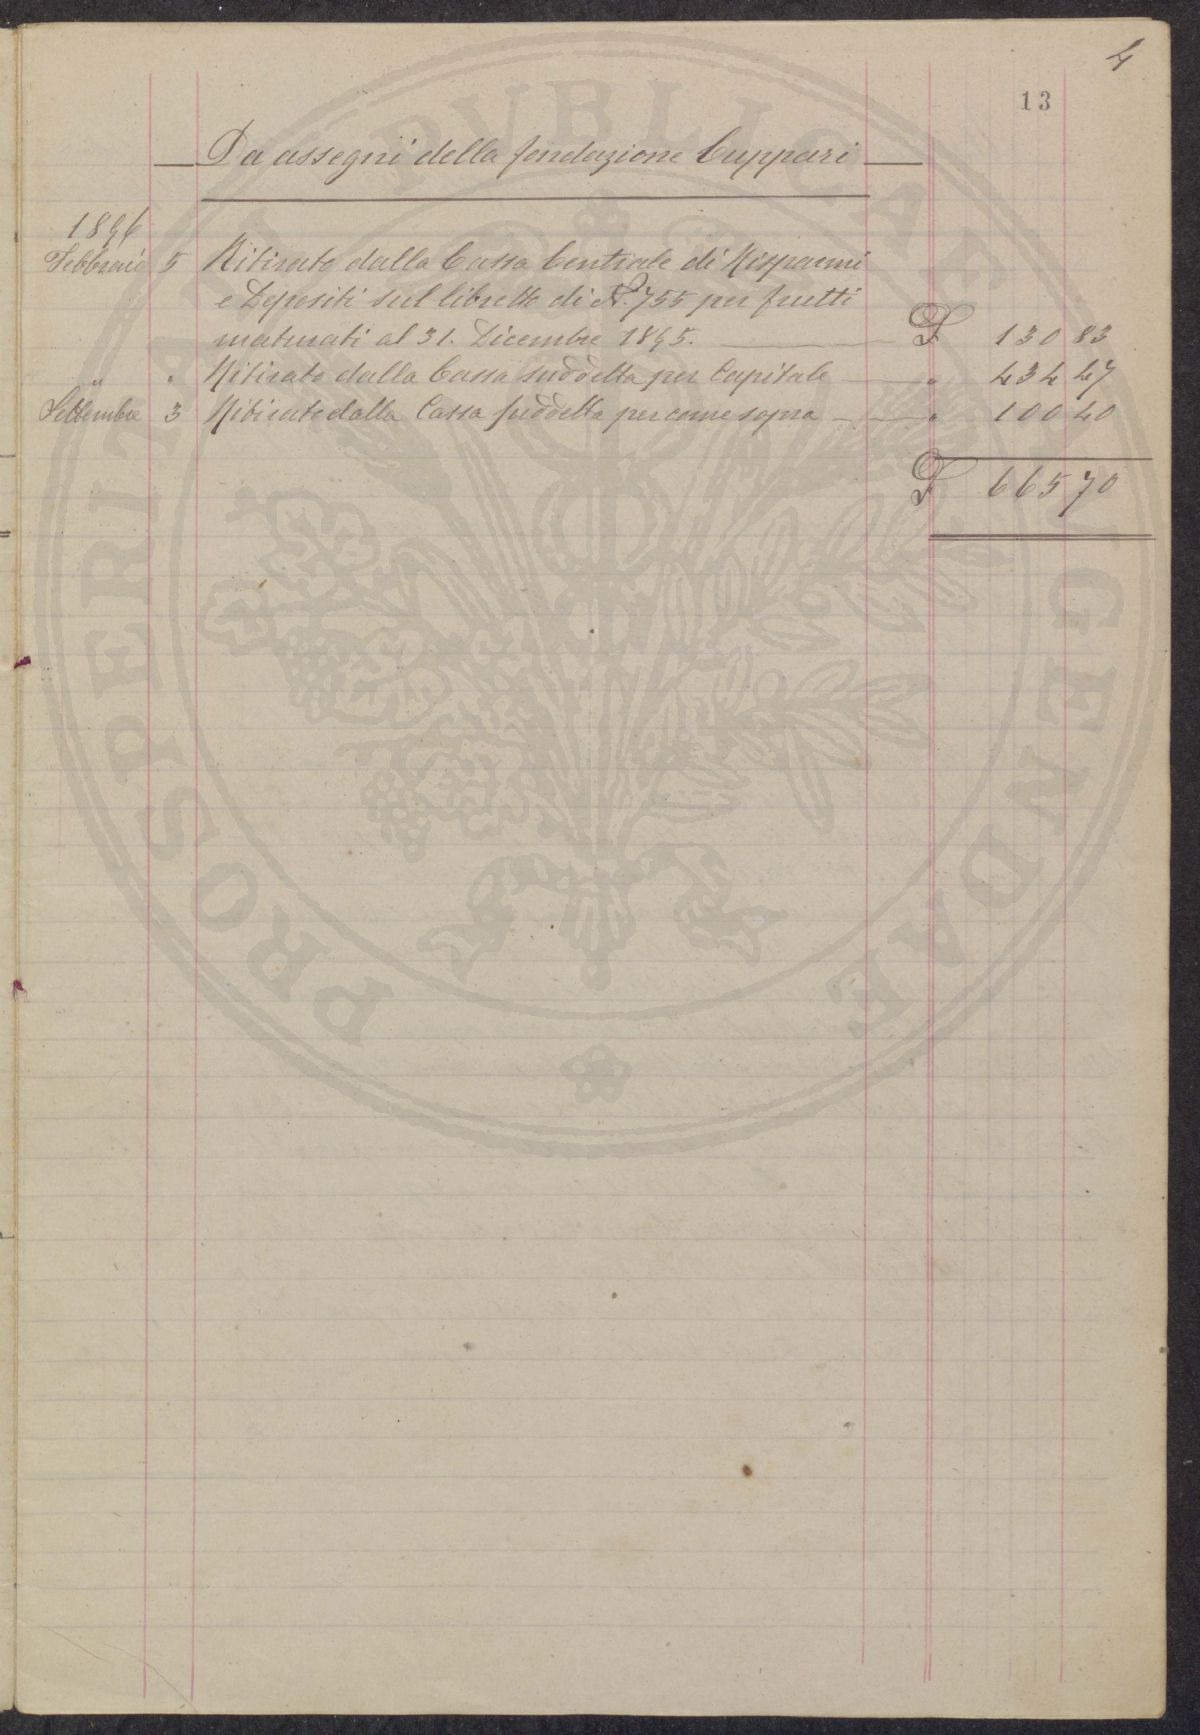 4
13
Da assegni della fondazione Cuppari
1896
Febbraio 5 Ritirato dalla Cassa Centrale di Risparmi
e Depositi sul libretto di N. 755 per frutti
maturati al 31. Dicembre 1895. £ 130 83
" " Ritirato dalla Cassa suddetta per Capitale " 434 47
Settembre 3 Ritirato dalla Cassa suddetta per come sopra " 100 40
£ 665 70
PROSPERITATI PVBLICAE AVGENDAE